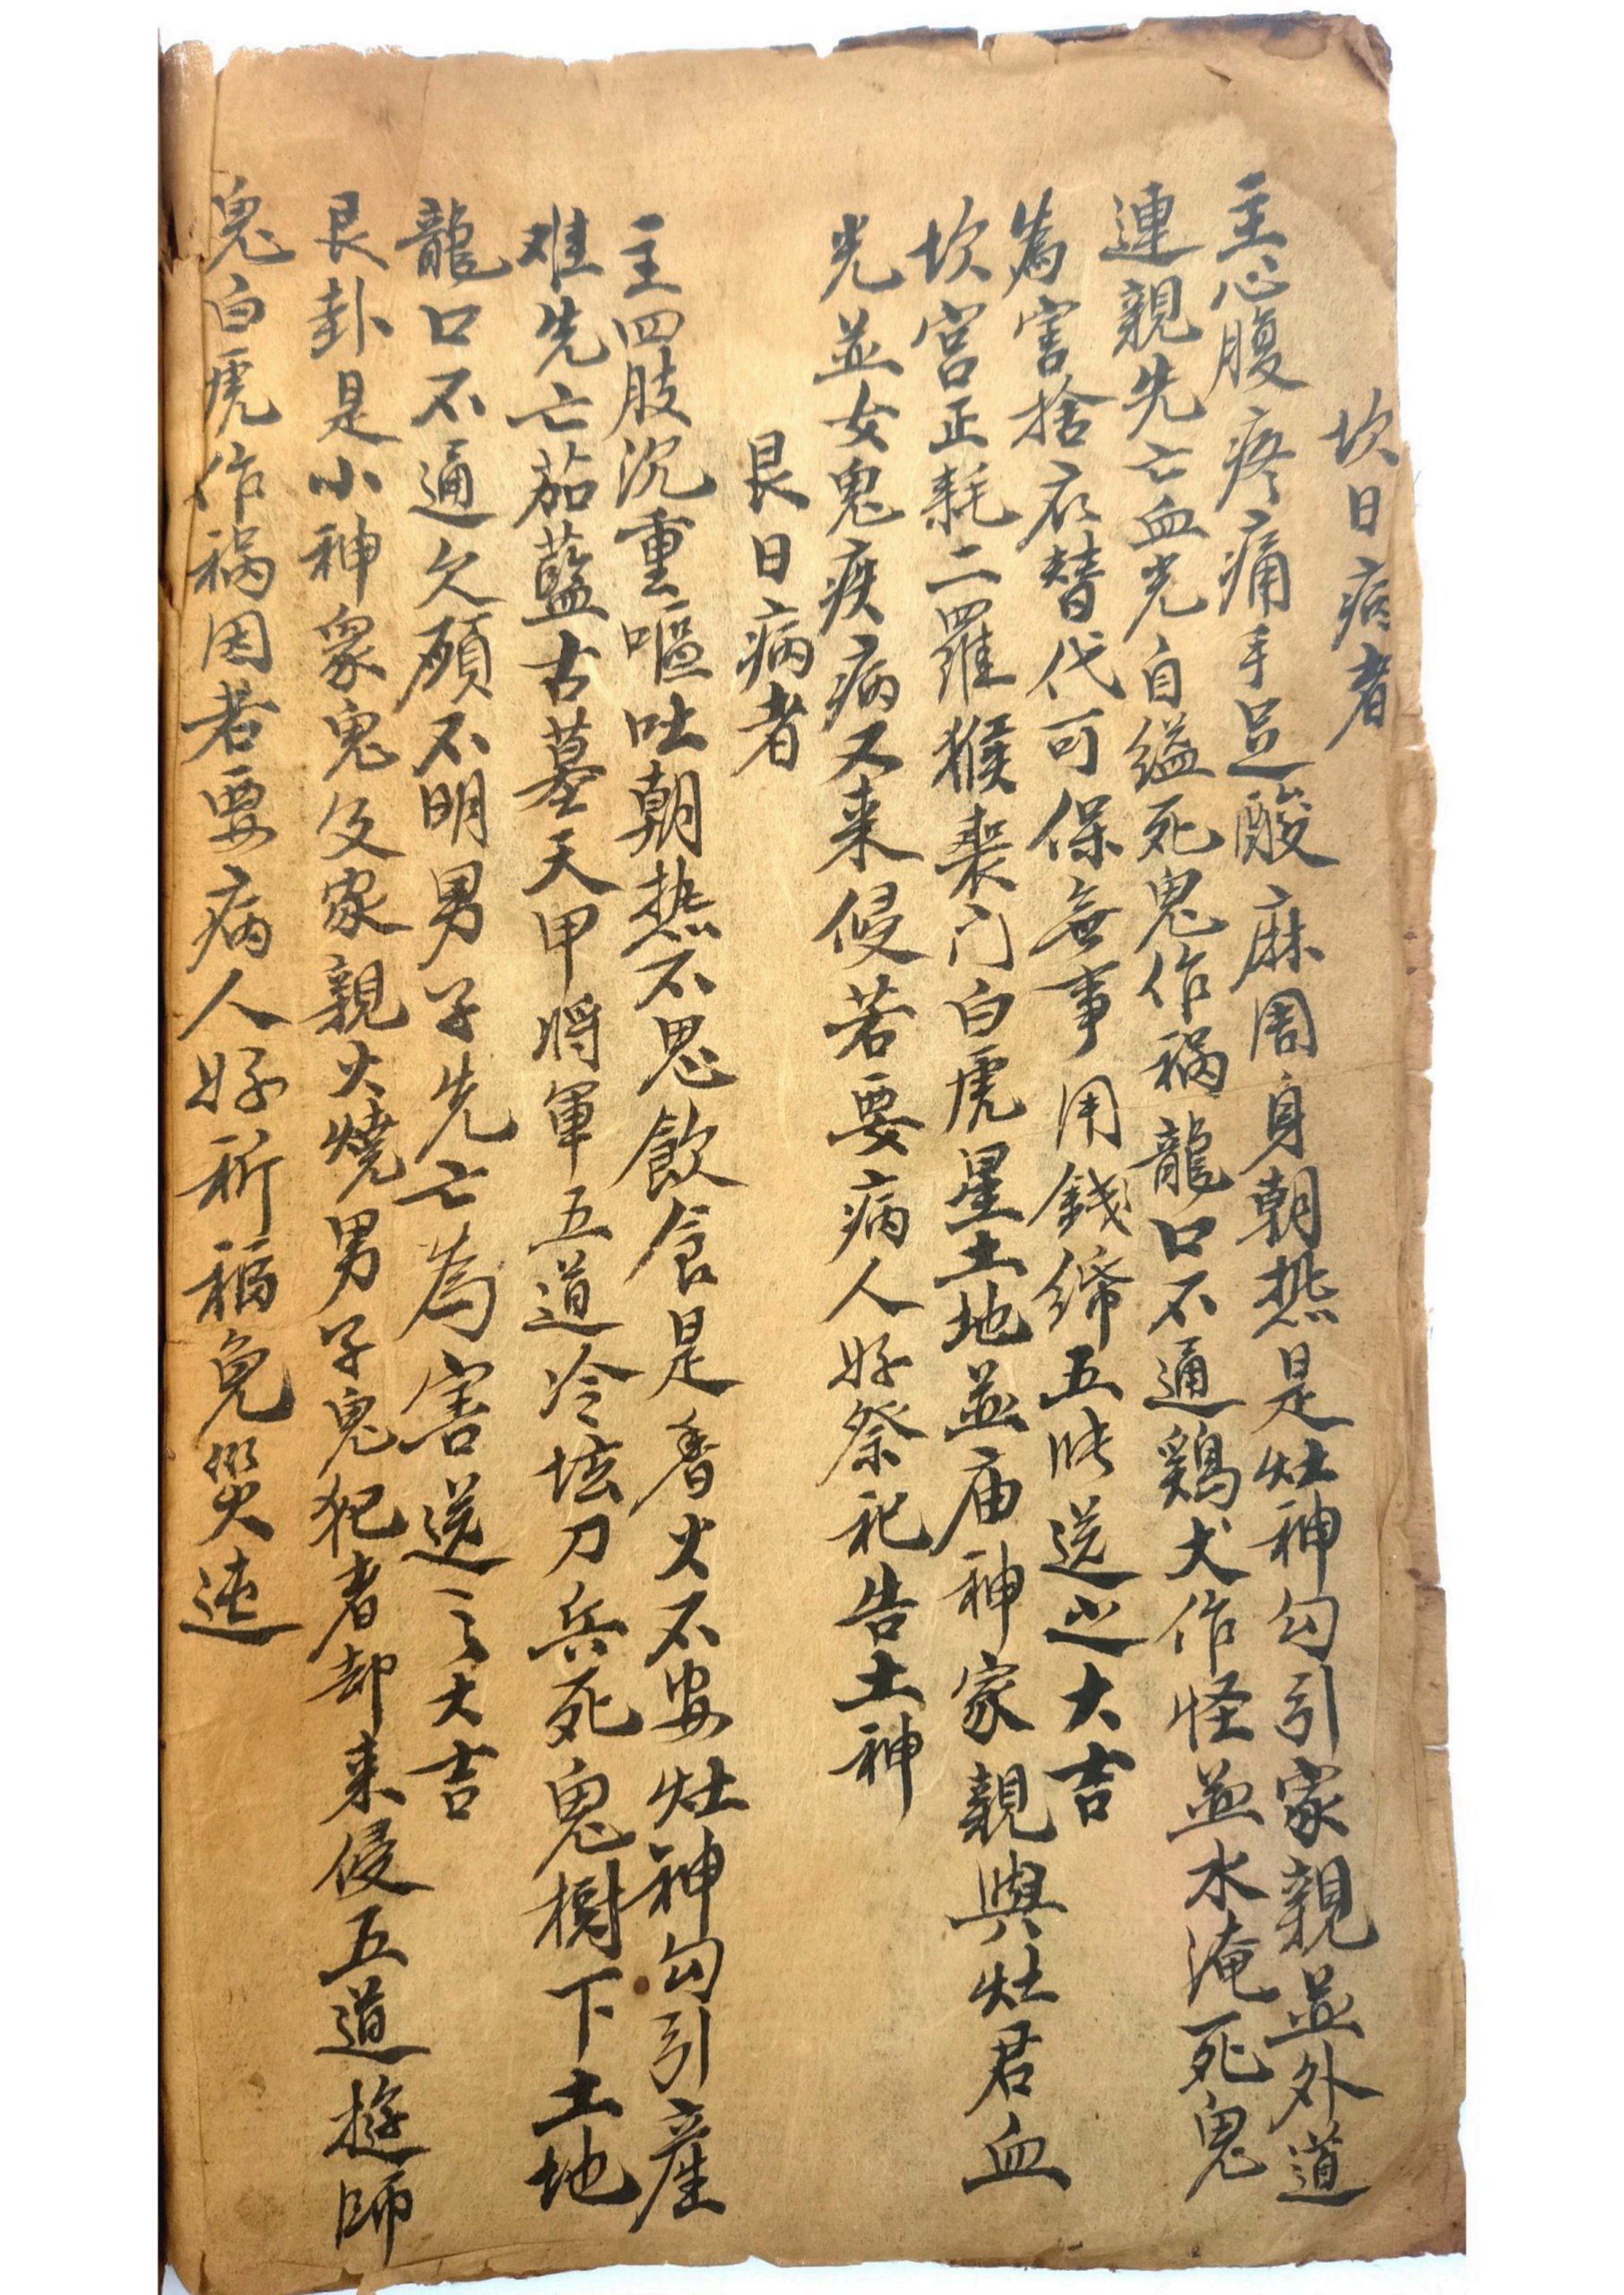 坎日病者
主心腹疼痛手足酸麻周身朝熱是灶神勾引家親並外道
連親先亡血光自縊死鬼作禍龍口不通鷄犬作怪並水淹死鬼
為害捨衣替代可保無事用錢綈五 送之大吉
坎宮正耗二羅猴喪门白虎星土地並庙神家親與灶君血
光並女鬼疾病又来侵若要病人好祭祀告土神
艮日病者
主四肢沉重嘔吐朝熱不思飲食是香火不安灶神勾引産
难先亡茄藍古墓天甲將軍五道冷坛刀兵死鬼樹下土地
龍口不通欠願不明男子先亡為害送之大吉
艮卦是小神家鬼及家親火燒男子鬼犯者却来侵五道遊師
鬼白虎作禍因若要病人好祈福免災迍